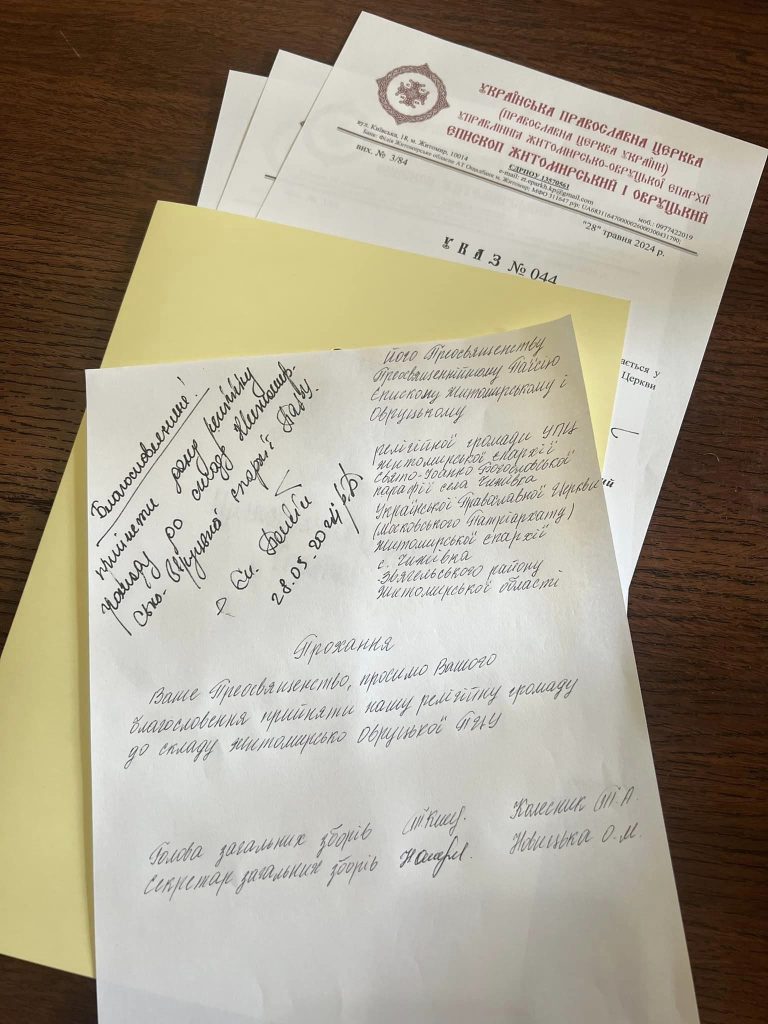 УКРАЇНСЬКА ПРАВОСЛАВНА ЦЕРКВА
(ПРАВОСЛАВНА ЦЕРКВА УКРАЇНИ)
УПРАВЛІННЯ ЖИТОМИРСЬКО-ОВРУЦЬКОЇ ЄПАРХІЇ
ЄПИСКОП ЖИТОМИРСЬКИЙ І ОВРУЦЬКИЙ
ЄДРПОУ 13570561
вул. Київська, 18, м. Житомир, 10014
e-mail: zt.eparkh.kp@gmail.com
моб.: 0977422019
Банк: Філія Житомирське обласне АТ Ощадбанк м. Житомир; МФО 311647
вих. № 3/84
"28" травня 2024 р.
УКАЗ № 044
ається у
Церкви
Благословенний!
прийняти дану релігійну
громаду до складу Житомир-
сько-Овруцької єпархії
28.05.2024 р.Б.
Його Преосвященству
Преосвященнійшому Паїсію
Єпископу Житомирському і
Овруцькому
релігійної громади УПЦ
Житомирської єпархії
Свято-Іоанно-Богословської
парафії села Чижівка
Української Православної Церкви
(Московського Патріархату)
Житомирської єпархії
с. Чижівка
Звягельського району
Житомирської області
Прохання
Ваше Преосвященство, просимо Вашого
благословення прийняти нашу релігійну громаду
до складу Житомирсько Овруцької ПЦУ
Голова загальних зборів Колесник Т.А.
Секретар загальних зборів Новицька О.М.